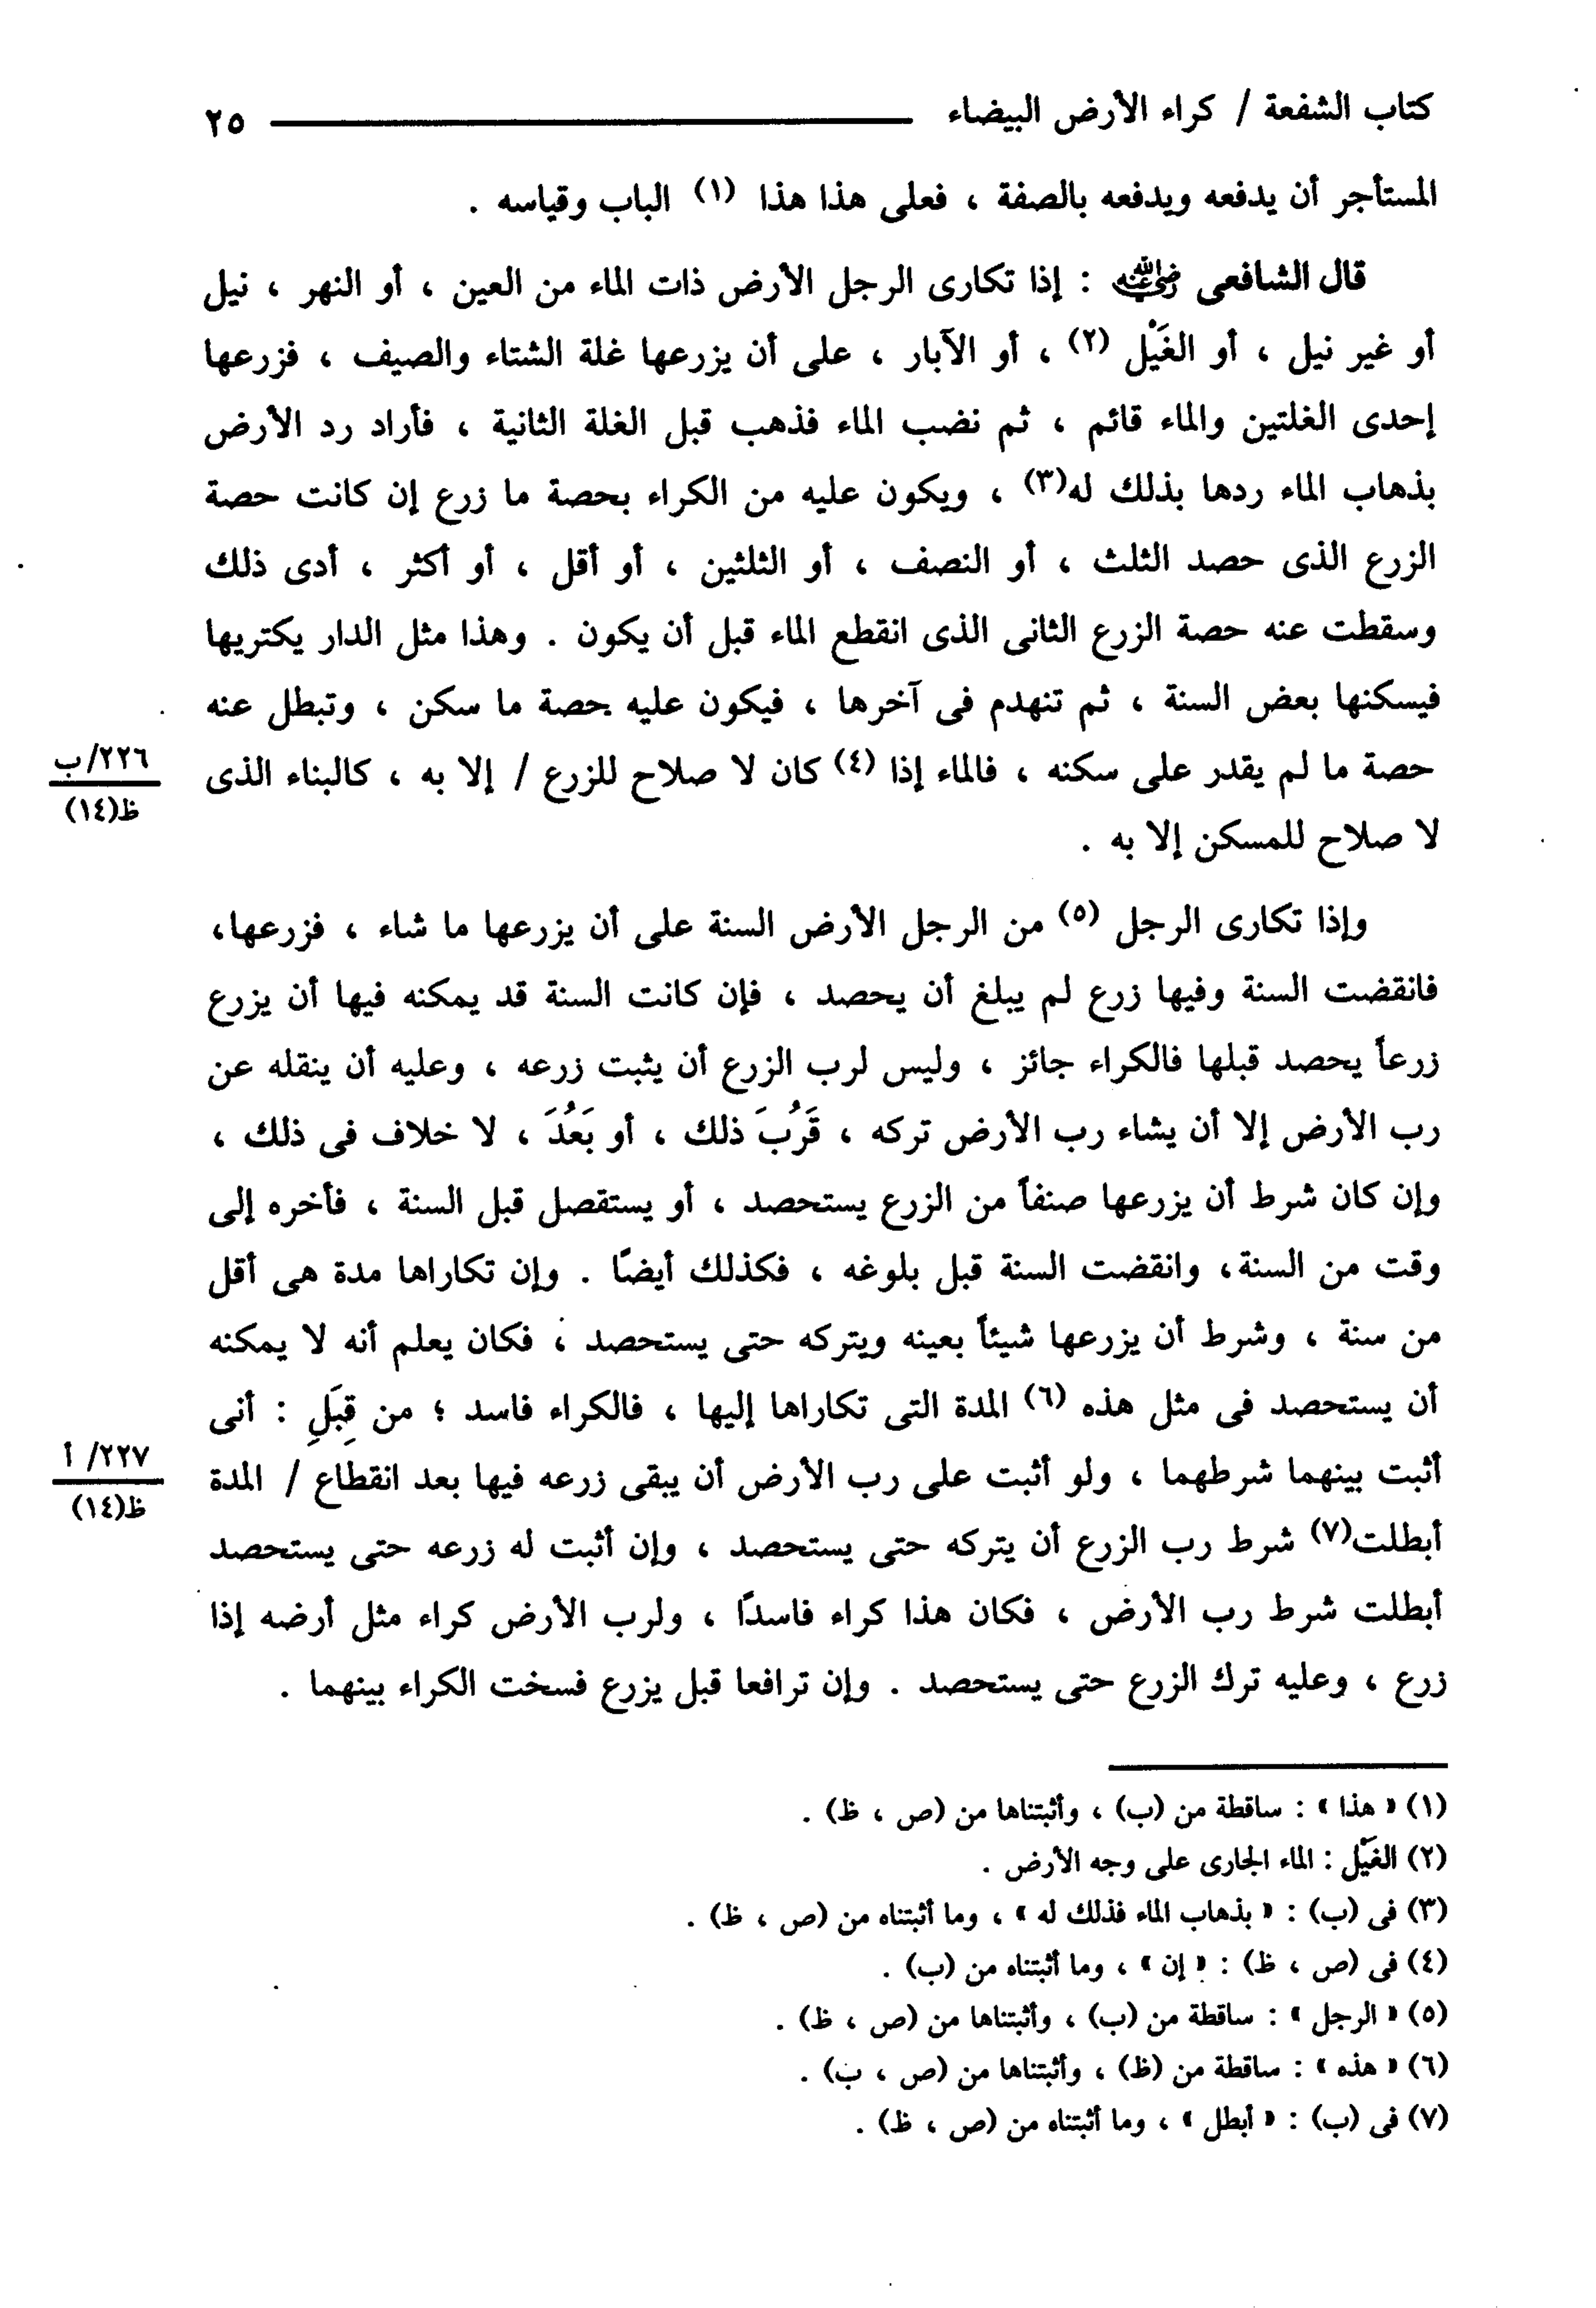 كتاب الشفعة / كراء الأرض البيضاء ٢٥
المستأجر أن يدفعه ويدفعه بالصفة ، فعلى هذا هذا (١) الباب وقياسه .
قال الشافعى رضي الله عنه : إذا تكارى الرجل الأرض ذات الماء من العين ، أو النهر ، نيل
أو غير نيل ، أو الغَيْل (٢) ، أو الآبار ، على أن يزرعها غلة الشتاء والصيف ، فزرعها
إحدى الغلتين والماء قائم ، ثم نضب الماء فذهب قبل الغلة الثانية ، فأراد رد الأرض
بذهاب الماء ردها بذلك له(٣) ، ويكون عليه من الكراء بحصة ما زرع إن كانت حصة
الزرع الذى حصد الثلث ، أو النصف ، أو الثلثين ، أو أقل ، أو أكثر ، أدى ذلك
وسقطت عنه حصة الزرع الثانى الذى انقطع الماء قبل أن يكون . وهذا مثل الدار يكتريها
فيسكنها بعض السنة ، ثم تنهدم فى آخرها ، فيكون عليه حصة ما سكن ، وتبطل عنه
حصة ما لم يقدر على سكنه ، فالماء إذا (٤) كان لا صلاح للزرع / إلا به ، كالبناء الذى
٢٢٦/ب
ظ(١٤)
لا صلاح للمسكن إلا به .
وإذا تكارى الرجل (٥) من الرجل الأرض السنة على أن يزرعها ما شاء ، فزرعها،
فانقضت السنة وفيها زرع لم يبلغ أن يحصد ، فإن كانت السنة قد يمكنه فيها أن يزرع
زرعاً يحصد قبلها فالكراء جائز ، وليس لرب الزرع أن يثبت زرعه ، وعليه أن ينقله عن
رب الأرض إلا أن يشاء رب الأرض تركه ، قَرُبَ ذلك ، أو بَعُدَ ، لا خلاف فى ذلك ،
وإن كان شرط أن يزرعها صنفاً من الزرع يستحصد ، أو يستقصل قبل السنة ، فأخره إلى
وقت من السنة، وانقضت السنة قبل بلوغه ، فكذلك أيضًا . وإن تكاراها مدة هى أقل
من سنة ، وشرط أن يزرعها شيئاً بعينه ويتركه حتى يستحصد ، فكان يعلم أنه لا يمكنه
أن يستحصد فى مثل هذه (٦) المدة التى تكاراها إليها ، فالكراء فاسد ؛ من قِبَلِ : أنى
أثبت بينهما شرطهما ، ولو أثبت على رب الأرض أن يبقى زرعه فيها بعد انقطاع / المدة
٢٢٧/ أ
ظ(١٤)
أبطلت(٧) شرط رب الزرع أن يتركه حتى يستحصد ، وإن أثبت له زرعه حتى يستحصد
أبطلت شرط رب الأرض ، فكان هذا كراء فاسدًا ، ولرب الأرض كراء مثل أرضه إذا
زرع ، وعليه ترك الزرع حتى يستحصد . وإن ترافعا قبل يزرع فسخت الكراء بينهما .
(١) « هذا » : ساقطة من (ب) ، وأثبتناها من (ص ، ظ) .
(٢) الغَيْل : الماء الجارى على وجه الأرض .
(٣) فى (ب) : « بذهاب الماء فذلك له » ، وما أثبتناه من (ص ، ظ) .
(٤) فى (ص ، ظ) : « إن » ، وما أثبتناه من (ب) .
(٥) « الرجل » : ساقطة من (ب) ، وأثبتناها من (ص ، ظ) .
(٦) « هذه » : ساقطة من (ظ) ، وأثبتناها من (ص ، ب) .
(٧) فى (ب) : « أبطل » ، وما أثبتناه من (ص ، ظ) .